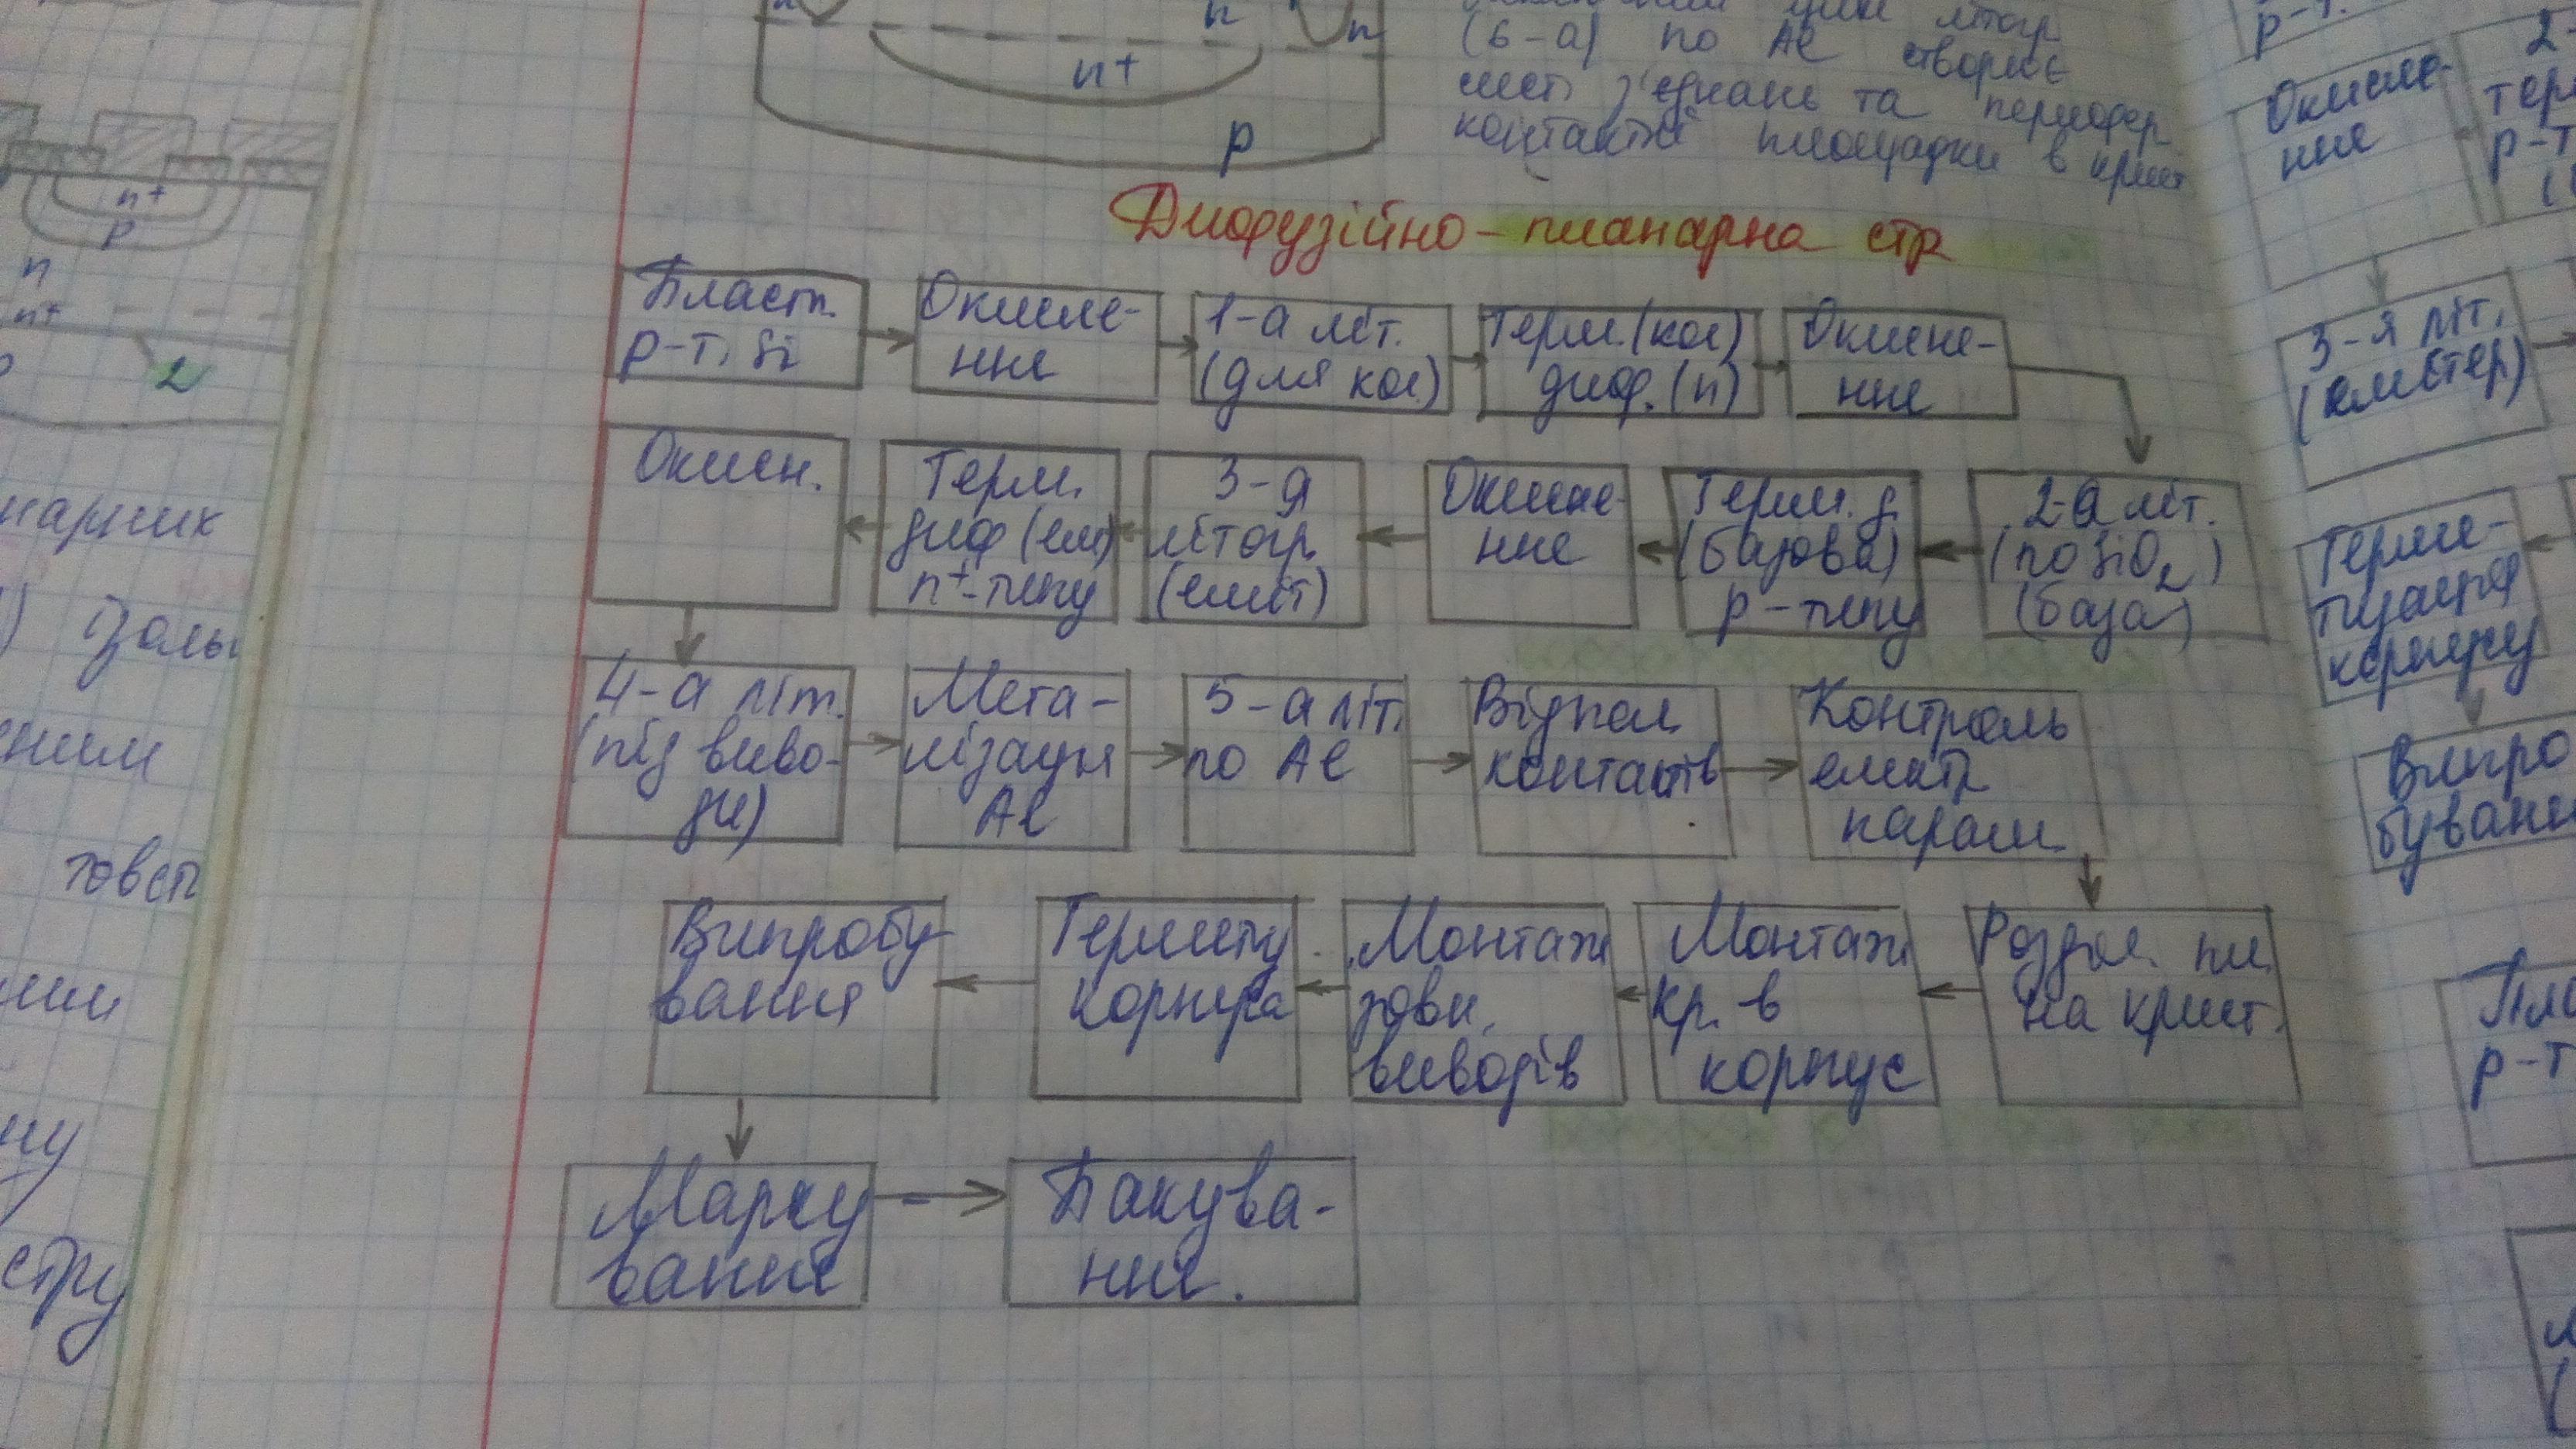 n+
p
n
n+
2
n
n
n+
p
(6-а) по Al створює
сист. з'єднань та перифер
контактні площадки в крист
Дифузійно-планарна стр
Пласт.
р-т. Si
Окисле-
ння
1-а літ.
(для кол)
Терм.(кол)
диф.(n)
Окисне-
ння
2-а літ.
(по SiO2)
(база)
Терм. д.
(базова)
р-типу
Окисне-
ння
3-я
літогр.
(еміт)
Терм.
диф (ем)
n+-типу
Окисн.
4-а літ.
(під виво-
ди)
Мета-
лізація
Al
5-а літ.
по Al
Відпал
контактів
Контроль
електр
парам.
Розділ. пл.
на крист.
Монтаж
кр. в
корпус
Монтаж
зовн.
виводів
Гермету
корпуса
Випробу
вання
Марку
вання
Пакува-
ння.
нарних
) ізоль
ним
товст
ним
ну
стру
р-т.
Окисле-
ння
2-
тер
р-т
3-я літ.
(емітер)
Герме-
тизація
корпусу
Випро
буванн
Пла
р-т